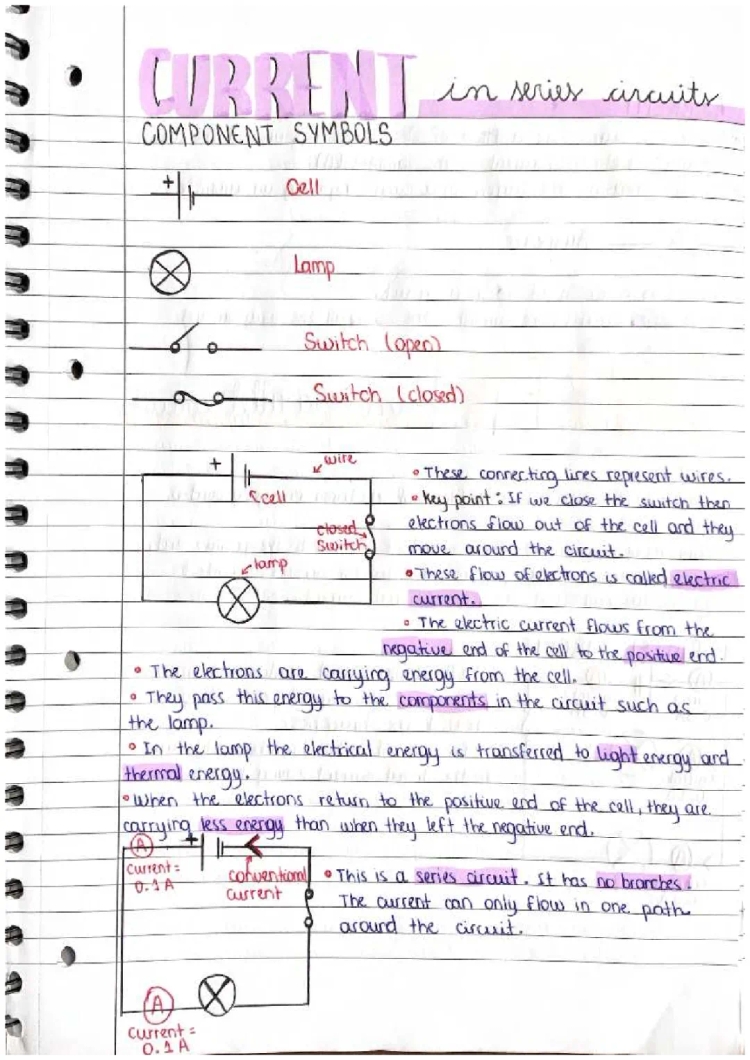 CURRENT in series circuits
COMPONENT SYMBOLS
+ Cell
Lamp
Switch (open)
Switch (closed)
+ wire
cell
closed
switch
lamp
• These connecting lines represent wires.
• key point: If we close the switch then
electrons flow out of the cell and they
move around the circuit.
• These flow of electrons is called electric
current.
• The electric current flows from the
negative end of the cell to the positive end.
• The electrons are carrying energy from the cell.
• They pass this energy to the components in the circuit such as
the lamp.
• In the lamp the electrical energy is transferred to light energy and
thermal energy.
• When the electrons return to the positive end of the cell, they are
carrying less energy than when they left the negative end.
A +
current =
0.1 A
conventional
current
• This is a series circuit. It has no branches.
The current can only flow in one path
around the circuit.
A
current =
0.1 A